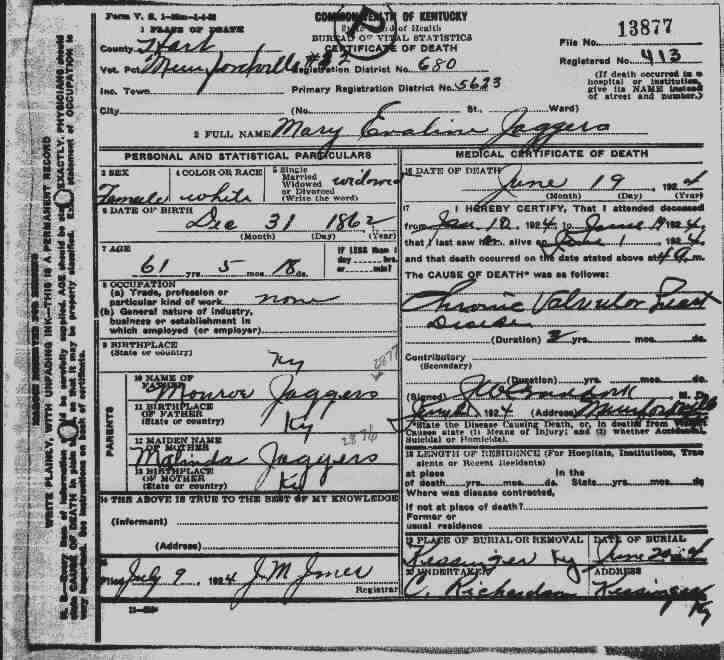 Form V. S. 1
COMMONWEALTH OF KENTUCKY
State Board of Health
BUREAU OF VITAL STATISTICS
CERTIFICATE OF DEATH
1 PLACE OF DEATH
File No. 13877
County Hart
Registered No. 413
Vot. Pct Munfordville #2 Registration District No. 680
(If death occurred in a hospital or institution, give its NAME instead of street and number.)
Inc. Town Primary Registration District No. 5623
City (No. St., Ward)
2 FULL NAME Mary Evaline Jaggers
PERSONAL AND STATISTICAL PARTICULARS
3 SEX Female
4 COLOR OR RACE white
5 Single Married Widowed or Divorced (Write the word) widowed
6 DATE OF BIRTH
Dec 31 1862
(Month) (Day) (Year)
7 AGE
IF LESS than 1 day hrs. or min?
61 yrs. 5 mos. 18 ds.
8 OCCUPATION
(a) Trade, profession or particular kind of work none
(b) General nature of industry, business or establishment in which employed (or employer)
9 BIRTHPLACE
(State or country) Ky
2877
PARENTS
10 NAME OF FATHER Monroe Jaggers
11 BIRTHPLACE OF FATHER
(State or country) Ky
2876
12 MAIDEN NAME OF MOTHER Malinda Jaggers
13 BIRTHPLACE OF MOTHER
(State or country) Ky
14 THE ABOVE IS TRUE TO THE BEST OF MY KNOWLEDGE
(Informant)
(Address)
Filed July 9, 1924 J. M. Jones
Registrar
MEDICAL CERTIFICATE OF DEATH
16 DATE OF DEATH
June 19 1924
(Month) (Day) (Year)
17 I HEREBY CERTIFY, That I attended deceased
from Jan 12, 1924, to June 19 1924,
that I last saw alive on June 1, 1924,
and that death occurred on the date stated above at 4 a m.
The CAUSE OF DEATH* was as follows:
Chronic Valvular Heart
Disease
(Duration) 2 yrs. mos. ds.
Contributory
(Secondary)
(Duration) yrs. mos. ds.
(Signed) M. D.
1924 (Address) Munfordville
*State the Disease Causing Death, or, in deaths from Violent Causes state (1) Means of Injury; and (2) whether Accidental, Suicidal or Homicidal.
18 LENGTH OF RESIDENCE (For Hospitals, Institutions, Transients or Recent Residents)
at place of death yrs. mos. ds. In the State yrs. mos. ds.
Where was disease contracted,
If not at place of death?
Former or usual residence
19 PLACE OF BURIAL OR REMOVAL Kessinger Ky
DATE OF BURIAL June 20 1924
20 UNDERTAKER C. Richardson
ADDRESS Kessinger Ky
WRITE PLAINLY, WITH UNFADING INK—THIS IS A PERMANENT RECORD